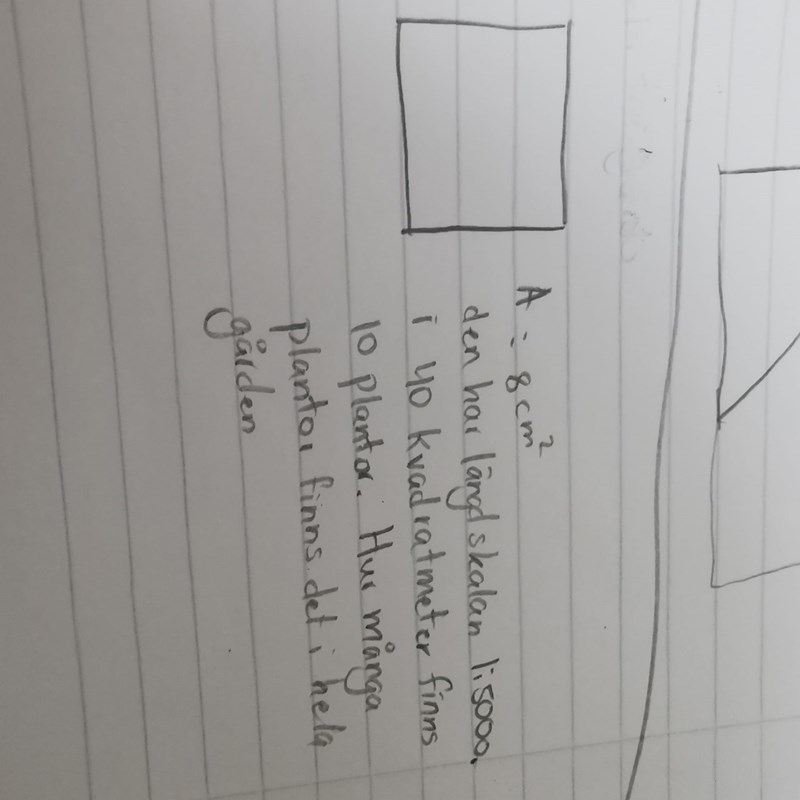 A = 8 cm²
den har längdskalan 1:5000.
i 40 kvadratmeter finns
10 plantor. Hur många
plantor finns det i hela
gården